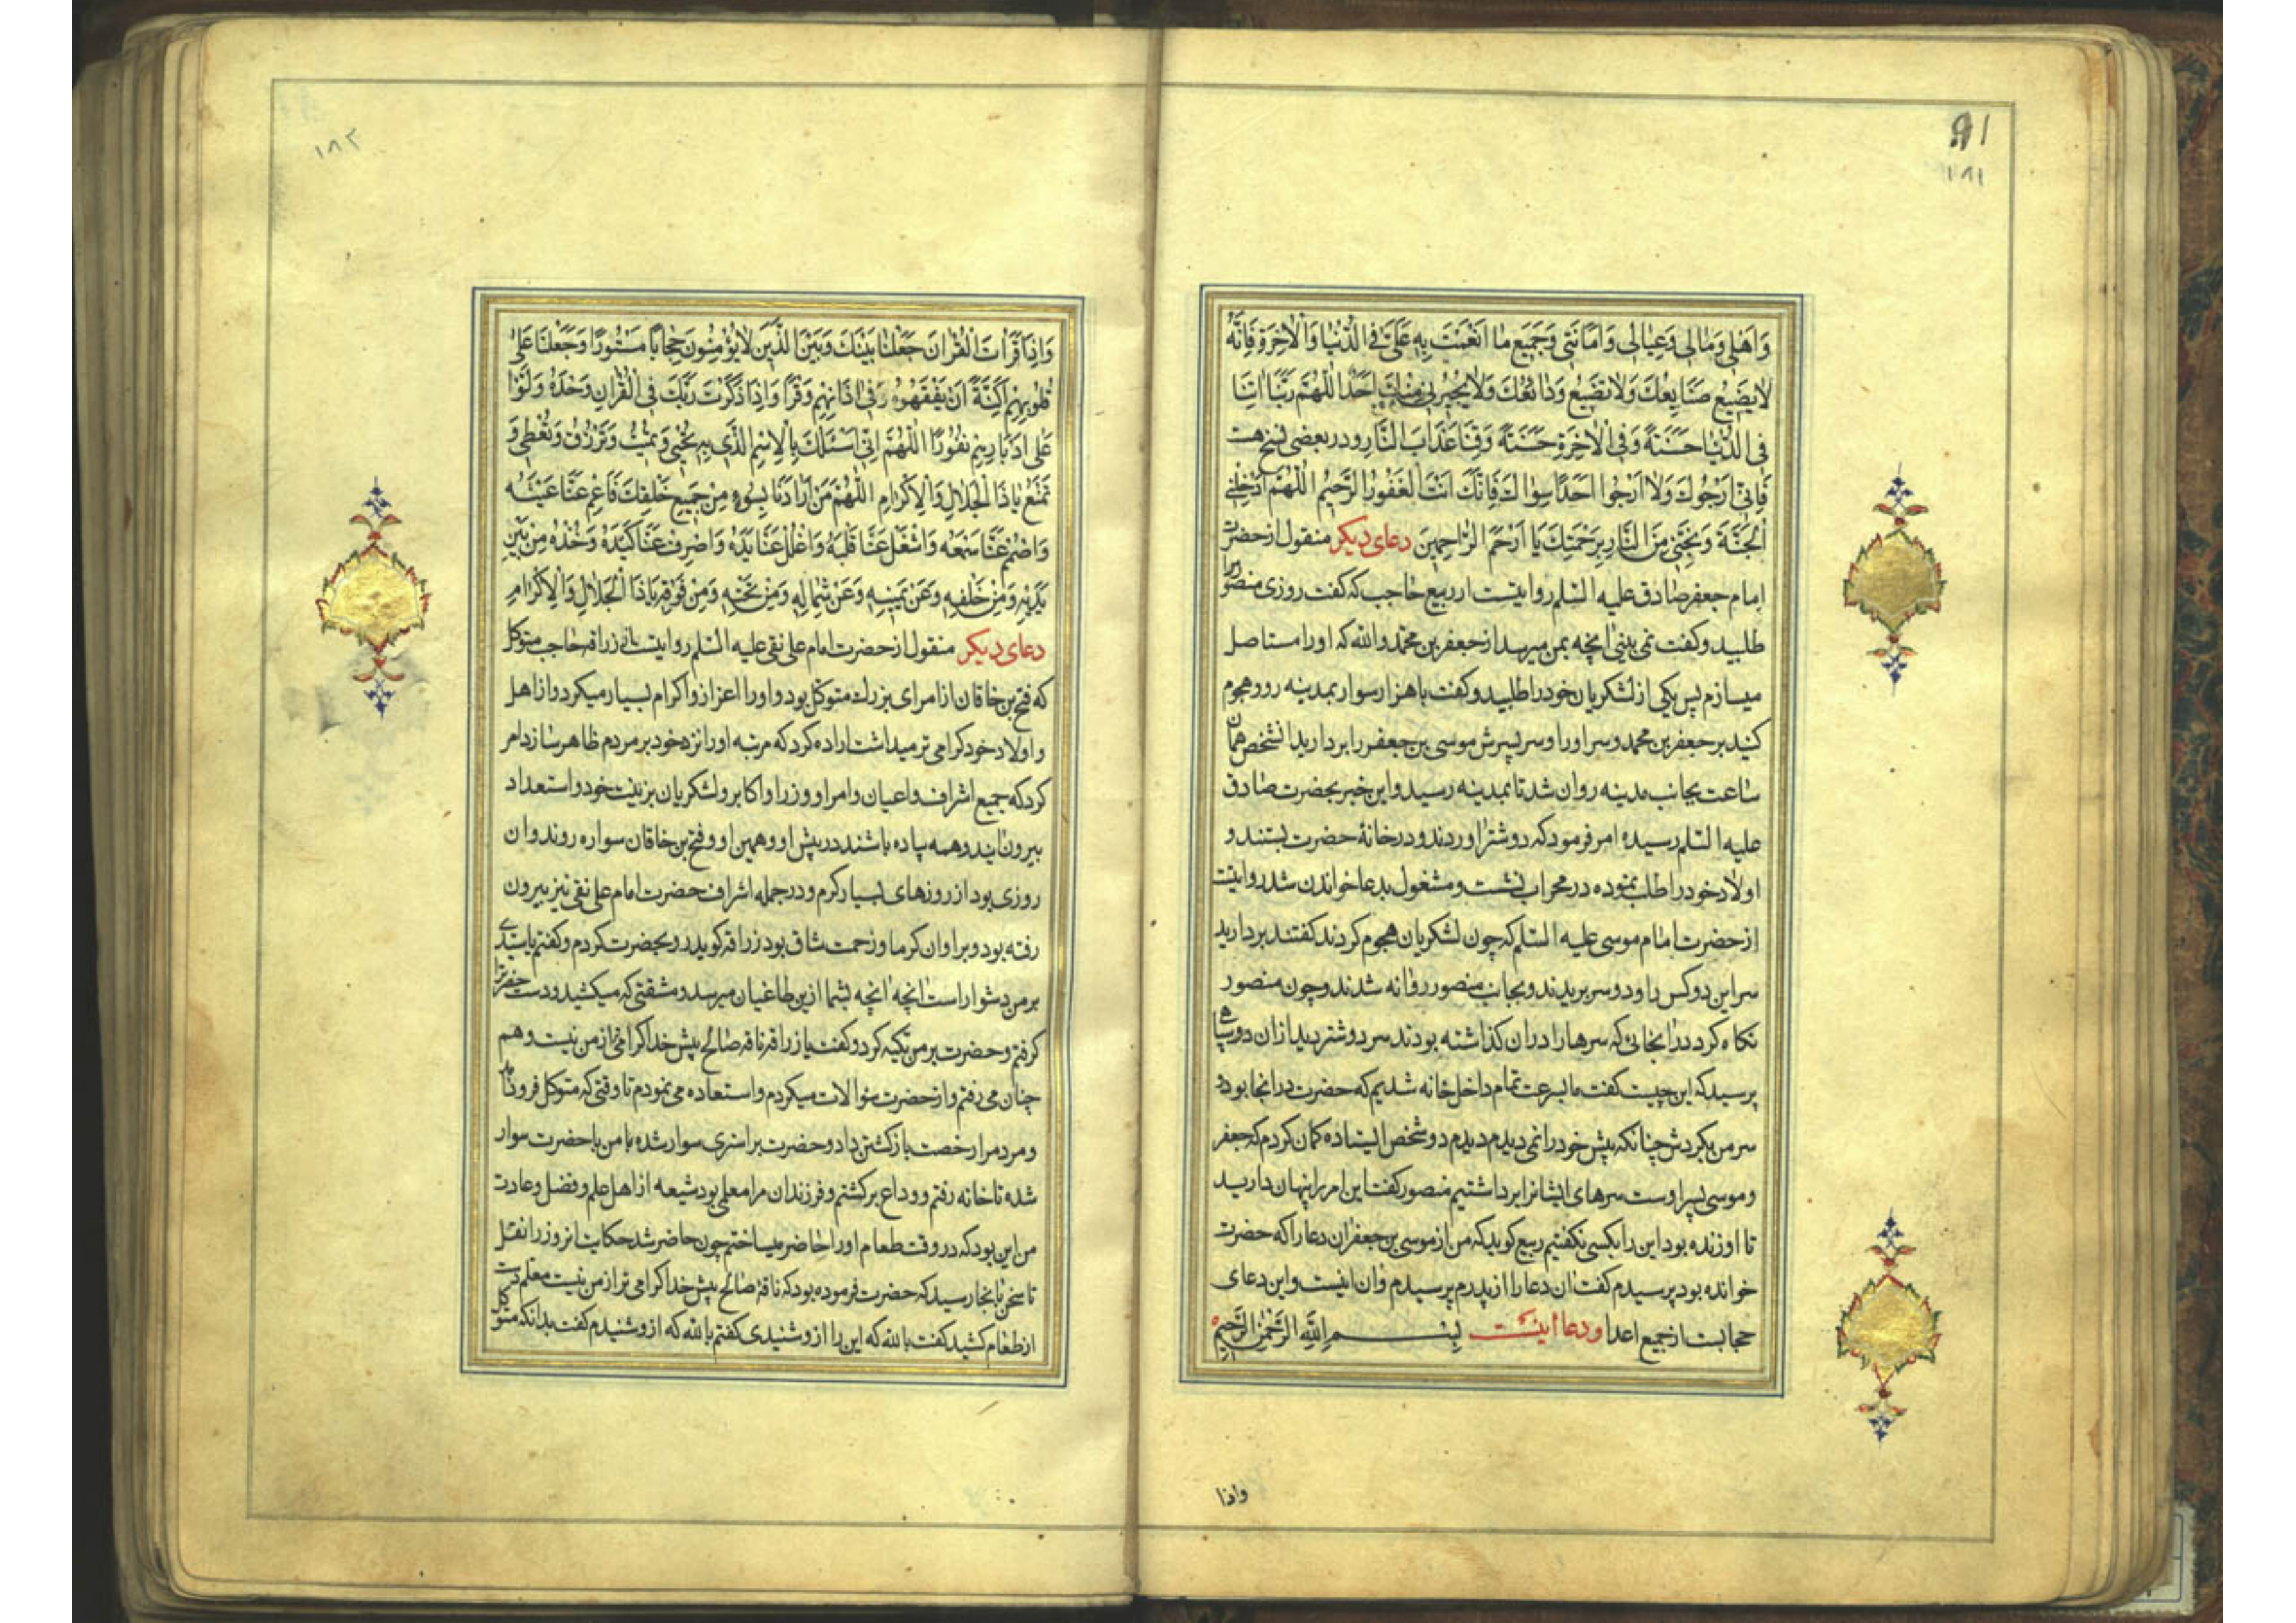 91
۱۸۱
وَاَهْلی وَمٰالی وَعِیٰالی وَاَمٰانَتی وَجَمیعِ ما اَنْعَمْتَ بِهِ عَلَیَّ فِی الدُّنْیٰا وَالْاٰخِرَةِ فَاِنَّهُ
لٰا یَضیعُ صَنٰایِعُكَ وَلٰا تَضیعُ وَدٰائعُكَ وَلٰا یُجیرُنی مِنْكَ اَحَدٌ اَللّٰهُمَّ رَبَّنٰا اٰتِنٰا
فِی الدُّنْیٰا حَسَنَةً وَفِی الْاٰخِرَةِ حَسَنَةً وَقِنٰا عَذٰابَ النّٰارِ ودر بعضی نسخ هست
فَاِنّی اَرْجُوكَ وَلٰا اَرْجُوا اَحَدًا سِوٰاكَ فَاِنَّكَ اَنْتَ الْغَفُورُ الرَّحیمُ اَللّٰهُمَّ اَدْخِلْنِی
الْجَنَّةَ وَنَجِّنی مِنَ النّٰارِ بِرَحْمَتِكَ یٰا اَرْحَمَ الرّٰاحِمینَ دعای دیکر منقول از حضرت
امام جعفر صادق علیه السّلم روایتست از ربیع حاجب که گفت روزی منصور مرا
طلبید وکفت نمی بینی انچه بمن میرسد از جعفر بن محمّد والله که اورا مستاصل
میسازم پس یکی از لشکریان خود را طلبید وکفت با هزار سوار بمدینه رو وهجوم
کنید بر جعفر بن محمد وسر اورا وسر پسرش موسی بن جعفر را بردارید انشخص همان
ساعت بجانب مدینه روان شد تا بمدینه رسید واین خبر بحضرت صادق
علیه السّلم رسیده امر فرمود که دو شتر اوردند ودر خانۀ حضرت بستند و
اولاد خود را طلب نموده در محراب نشست ومشغول بدعا خواندن شد روایتست
از حضرت امام موسی علیه السّلم که چون لشکریان هجوم کردند کفتند بردارید
سر این دو کس را ودو سر بریدند وبجانب منصور روانه شدند وچون منصور
نکاه کرد در انجائی که سرها را دران کذاشته بودند سر دو شتر دید ازان دو سپاهی
پرسید که این چیست کفت ما بسرعت تمام داخل خانه شدیم که حضرت در انجا بود و
سر من بکردش چنانکه پیش خود را نمی دیدم دیدم دو شخص ایستاده کمان کردم که جعفر
وموسی پسر اوست سرهای ایشانرا برداشتیم منصور کفت این امر را پنهان دارید
تا او زنده بود این را بکسی نکفتیم ربیع کوید که من از موسی بن جعفر ان دعا را که حضرت
خوانده بود پرسیدم کفت ان دعا را از پدرم پرسیدم وان اینست واین دعای
حجابست از جمیع اعدا ودعا اینست بِسْمِ اللّٰهِ الرَّحْمٰنِ الرَّحیمِ
واذا
۱۸۲
وَاِذٰا قَرَاْتَ الْقُرْاٰنَ جَعَلْنٰا بَیْنَكَ وَبَیْنَ الَّذینَ لٰا یُؤْمِنُونَ حِجٰابًا مَسْتُورًا وَجَعَلْنٰا عَلیٰ
قُلُوبِهِمْ اَکِنَّةً اَنْ یَفْقَهُوهُ وَفی اٰذٰانِهِمْ وَقْرًا وَاِذٰا ذَکَرْتَ رَبَّكَ فِی الْقُرْاٰنِ وَحْدَهُ وَلَّوْا
عَلیٰ اَدْبٰارِهِمْ نُفُورًا اَللّٰهُمَّ اِنّی اَسْئَلُكَ بِالْاِسْمِ الَّذی بِهِ تُحْیی وَتُمیتُ وَتَرْزُقُ وَتُعْطی وَ
تَمْنَعُ یٰا ذَا الْجَلٰالِ وَالْاِکْرٰامِ اَللّٰهُمَّ مَنْ اَرٰادَنٰا بِسُوءٍ مِنْ جَمیعِ خَلْقِكَ فَاَعْمِ عَنّٰا عَیْنَهُ
وَاصْمُمْ عَنّٰا سَمْعَهُ وَاشْغَلْ عَنّٰا قَلْبَهُ وَاغْلُلْ عَنّٰا یَدَهُ وَاصْرِفْ عَنّٰا کَیْدَهُ وَخُذْهُ مِنْ بَیْنِ
یَدَیْهِ وَمِنْ خَلْفِهِ وَعَنْ یَمینِهِ وَعَنْ شِمٰالِهِ وَمِنْ تَحْتِهِ وَمِنْ فَوْقِهِ یٰا ذَا الْجَلٰالِ وَالْاِکْرٰامِ
دعای دیکر منقول از حضرت امام علی نقی علیه السّلم روایتست از زرافه حاجب متوکل
که فتح بن خاقان از امرای بزرك متوکل بود واورا اعزاز واکرام بسیار میکرد واز اهل
واولاد خود کرامی تر میداشت اراده کرد که مرتبه اورا نزد خود بر مردم ظاهر سازد امر
کرد که جمیع اشراف واعیان وامرا ووزرا واکابر ولشکریان بزینت خود واستعداد
بیرون ایند وهمه پیاده باشند در پیش او وهمین او وفتح بن خاقان سواره روند وان
روزی بود از روزهای بسیار کرم ودر جمله اشراف حضرت امام علی نقی نیز بیرون
رفته بود وبر او ان کرما وزحمت شاق بود زرافه کوید رو بحضرت کردم وکفتم یا سیّدی
بر من دشوار است انچه بشما ازین طاغیان میرسد ومشقتی که میکشید ودست حضرترا
کرفتم وحضرت بر من تکیه کرد وکفت یا زرافه ناقه صالح پیش خدا کرامی تر از من نیست وهم
چنان می رفتم واز حضرت سؤالات میکردم واستعاده می نمودم تا وقتی که متوکل فرود امد
ومردم را رخصت باز کشتن داد وحضرت بر استری سوار شده با من با حضرت سوار
شده تا خانه رفتم ووداع برکشتم وفرزندان مرا معلمی بود شیعه از اهل علم وفضل وعادت
من این بود که در وقت طعام اورا حاضر میساختم چون حاضر شد حکایت انروز را نقل
تا سخن بانجا رسید که حضرت فرموده بود که ناقۀ صالح پیش خدا کرامی تر از من نیست معلم دست
از طعام کشید کفت بالله که این را ازو شنیدی کفتم بالله که ازو شنیدم کفت بدانکه متوکل